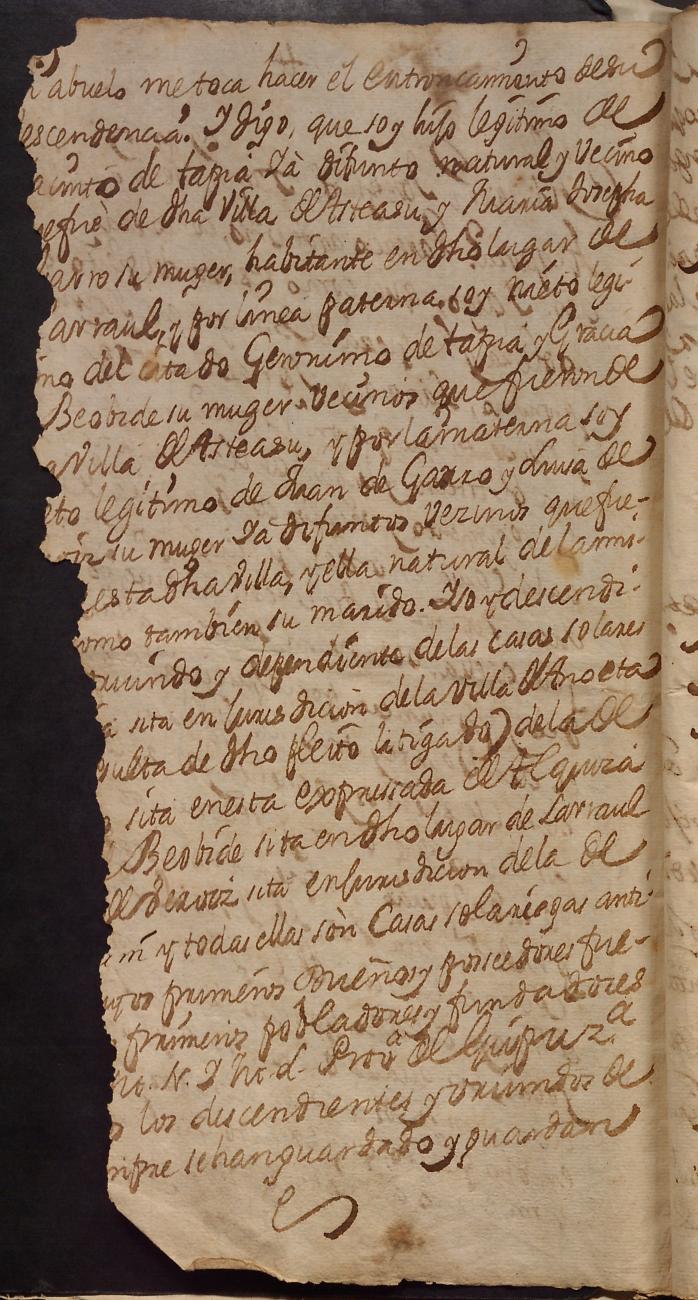 abuelo me toca hacer el entroncamiento de su
escendencia. Y digo, que soy hijo legitimo de
acinto de tapia Ya difunto natural y vecino
que fue de dha Villa de Asteasu, y Maria Josepha
arro su muger, habitante en dho lugar de
arraul, y por linea paterna soy nieto legi-
mo del citado Geronimo de tapia, y Gracia
Beobide su muger Vecinos que fueron de
a Villa de Asteasu, y por la materna soy
eto legitimo de Juan de Garro y Luisa de
oiz su muger Ya difuntos Vezinos que fue-
esta dha Villa, y ella natural de la mis-
omo tambien su marido. Yo y descendi-
riundo y dependiente de las casas solares
a sita en Jurisdicion de la Villa de Anoeta
sulta de dho pleito litigado) de la de
sita en esta expresada de Alquiza
Beobide sita en dho lugar de Larraul
de sita en Jurisdicion de la de
y todas ellas son Casas solariegas anti-
uyos primeros Dueños y poseedores fue-
primeros pobladores y fundadores
no. N. Y no. d. Prova de Guipuza
los descendientes y oriundos de
mpre se han guardado y guardan